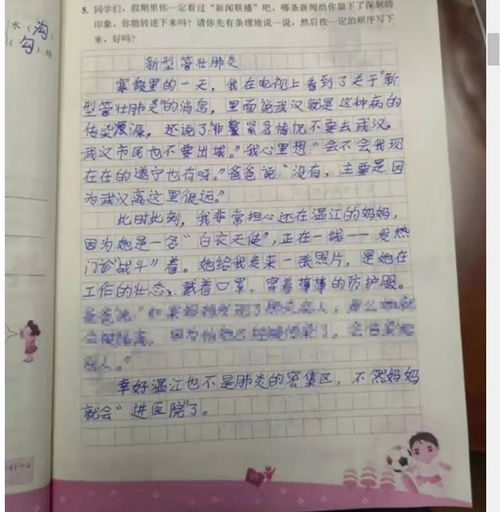 水(沟)
(勾)
5. 同学们，假期里你一定看过“新闻联播”吧，哪条新闻给你留下了深刻的
印象，你能转述下来吗？请你先有条理地说一说，然后按一定的顺序写下
来，好吗？
新型管壮肺炎
寒假里的一天，我在电视上看到了关于“新
型管壮肺炎”的消息，里面说武汉就是这种病的
传染源，还说了“非紧急情况不要去武汉，
武汉市民也不要出城。”我心里想：“会不会我现
在在的遂宁也有呀。”爸爸说：“没有，主要是因
为武汉离这里很远。”
此时此刻，我非常担心还在温江的妈妈，
因为她是一名“白衣天使”，正在一线——发热
门诊“战斗”着。她给我发来一张照片，是她在
工作的壮态：戴着口罩，穿着
的防护服。
幸好温江也不是肺炎的密集区，不然妈妈
就会“进医院”了。